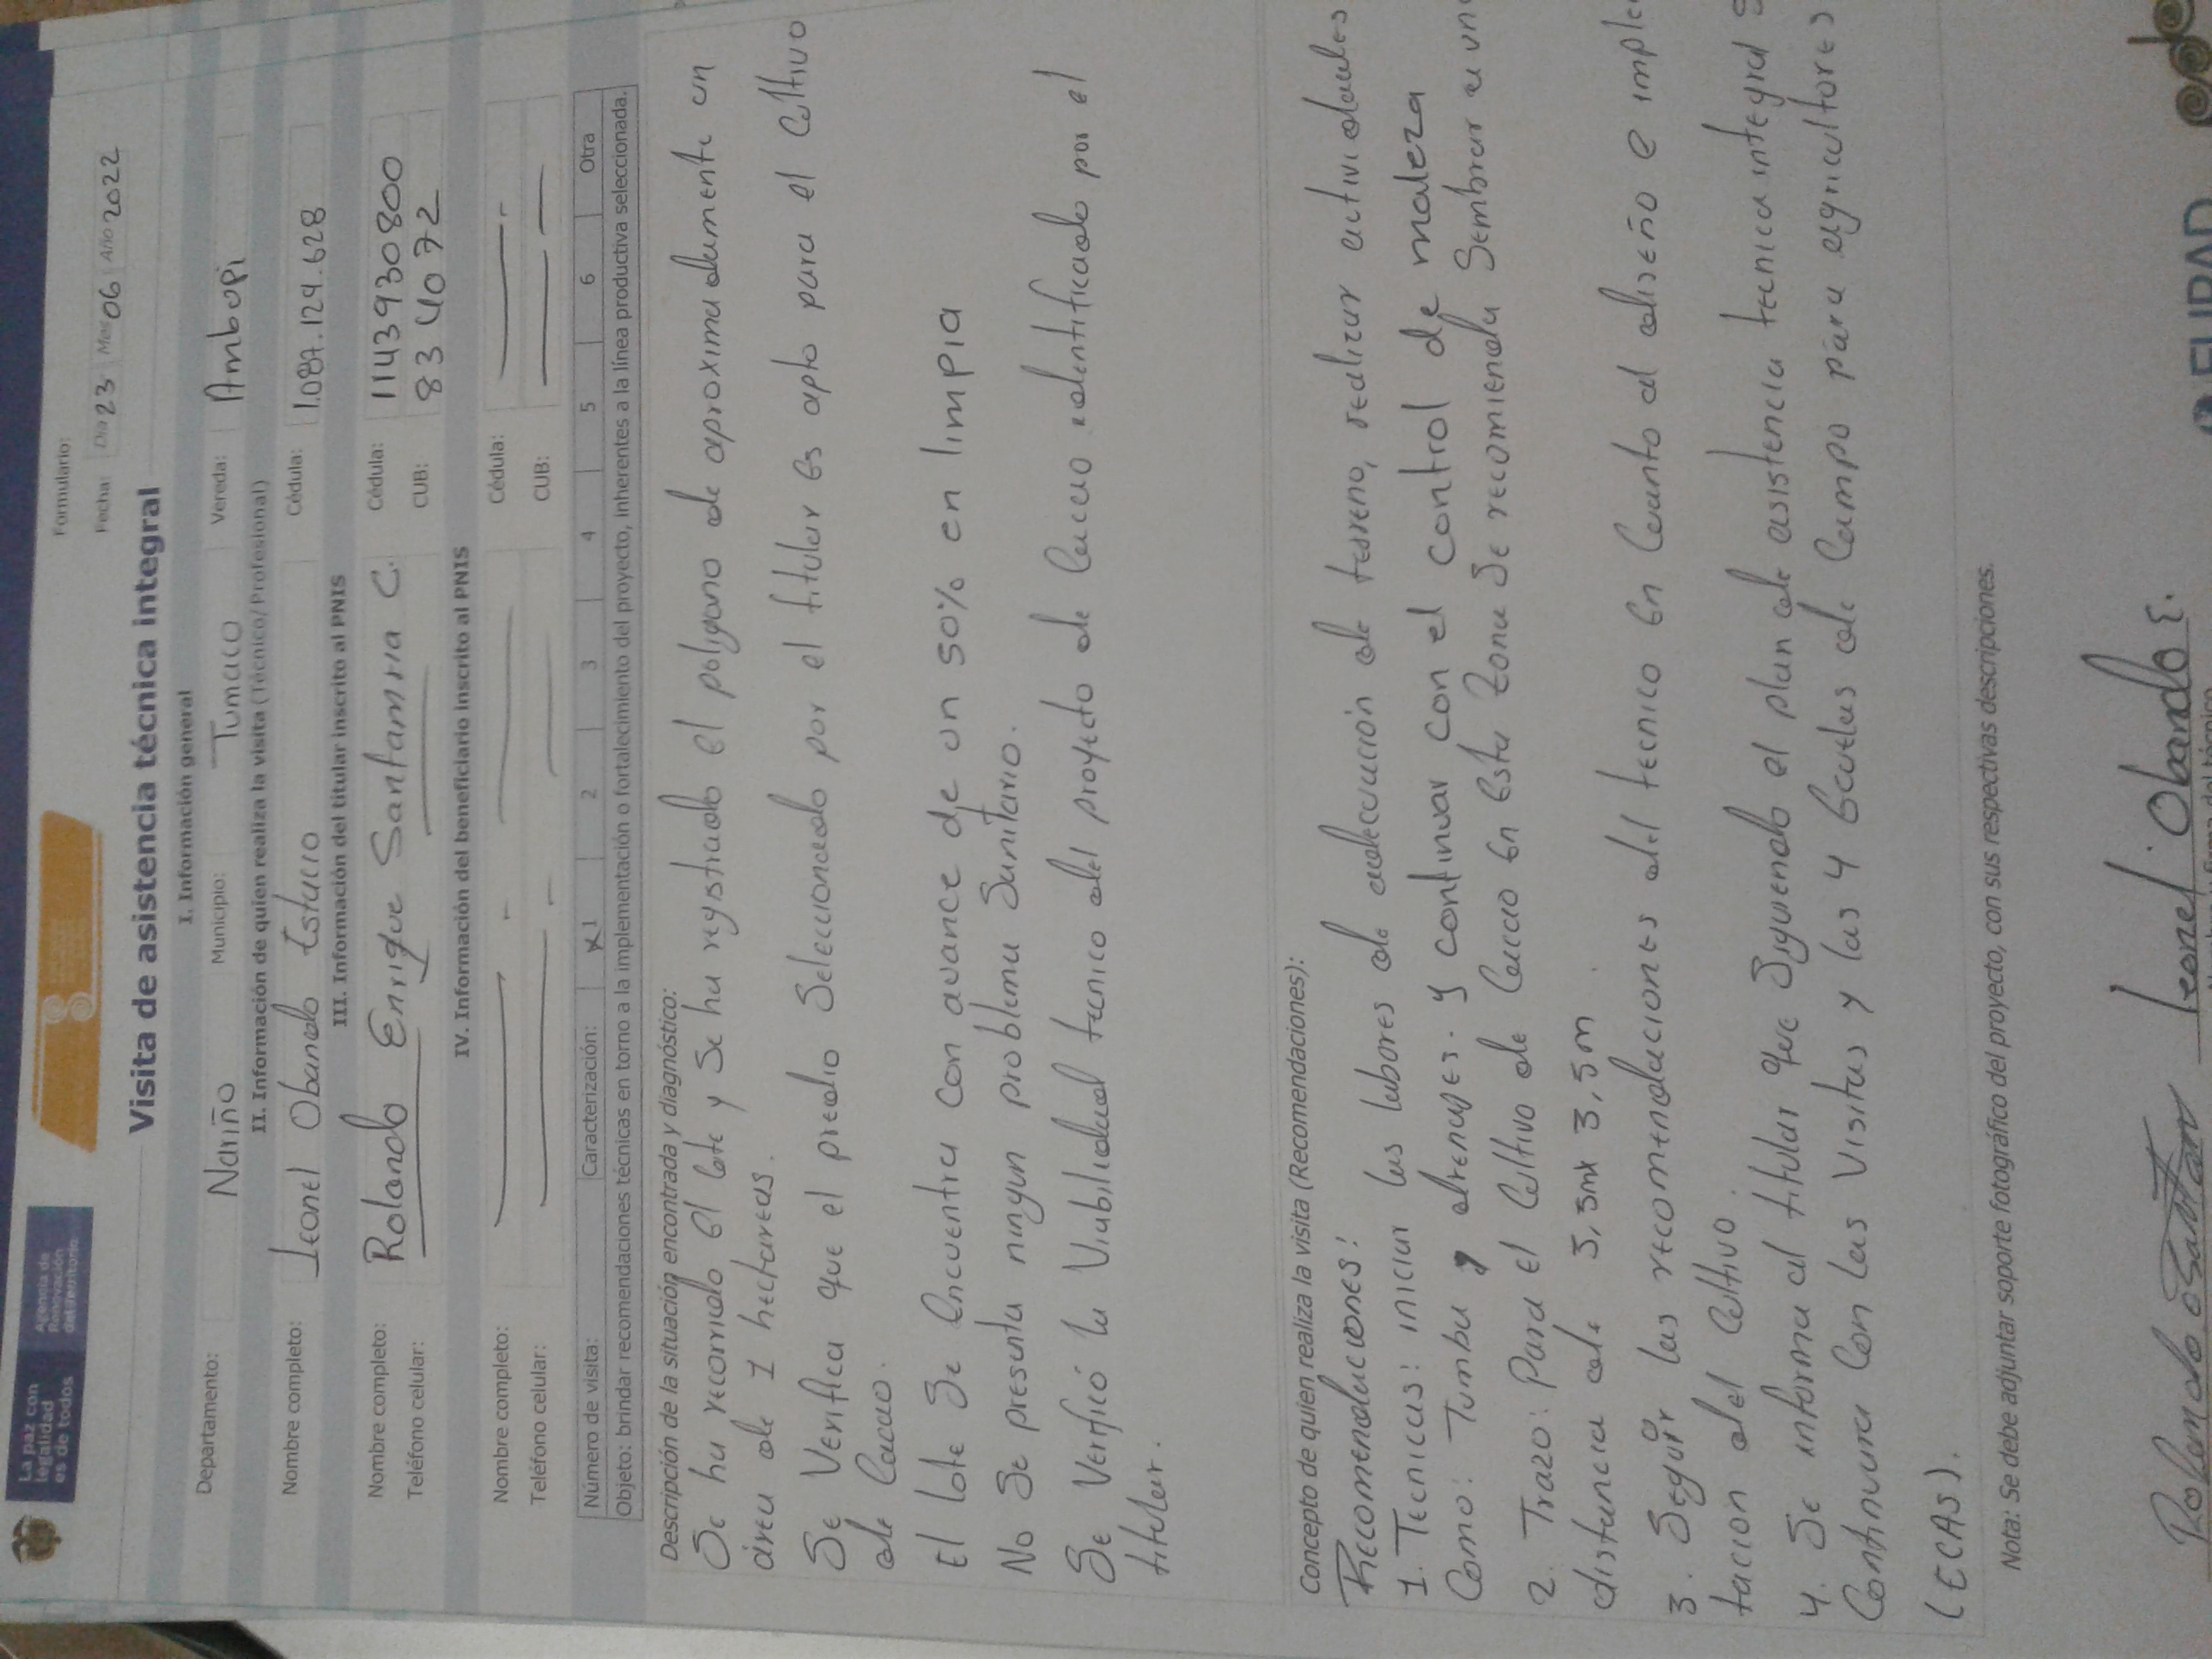 La paz con
legalidad
es de todos
Agencia de
Renovación
del Territorio
Formulario:
Fecha: Día 23 Mes 06 Año 2022
Visita de asistencia técnica integral
I. Información general
Departamento: Nariño Municipio: Tumaco Vereda: Ambupi
II. Información de quien realiza la visita (Técnico/Profesional)
Nombre completo: Leonel Obando Estacio Cédula: 1.087.124.628
III. Información del titular inscrito al PNIS
Nombre completo: Rolando Enrique Santamria C. Cédula: 1143930800
Teléfono celular: CUB: 834072
IV. Información del beneficiario inscrito al PNIS
Nombre completo: Cédula:
Teléfono celular: CUB:
Número de visita: Caracterización: X 1 2 3 4 5 6 Otra
Objeto: brindar recomendaciones técnicas en torno a la implementación o fortalecimiento del proyecto, inherentes a la línea productiva seleccionada.
Descripción de la situación encontrada y diagnóstico:
Se ha recorrido el lote y se ha registrado el poligono de aproximadamente un
área de 1 hectareas.
Se Verifica que el predio Seleccionado por el titular es apto para el Cultivo
de Cacao.
El lote Se Encuentra con avance de un 50% en limpia
No Se presenta ningun problema Sanitario.
Se Verificó la Viabilidad tecnico del proyecto de Cacao identificado por el
titular.
Concepto de quien realiza la visita (Recomendaciones):
Recomendaciones:
1. Tecnicas: iniciar las labores de adecuación de terreno, realizar actividades
Como: Tumba y drenajes. y continuar con el control de maleza
2. Trazo: Para el Cultivo de Cacao en Esta Zona Se recomienda Sembrar a un
distancia de 3,5m x 3,5m
3. Seguir las recomendaciones del tecnico En Cuanto al diseño e imple
tacion del Cultivo.
4. Se informa al titular que Siguiendo el plan de asistencia tecnica integral S
Continuara Con las Visitas y las 4 Escuelas de Campo para agricultores
(ECAS).
Nota: Se debe adjuntar soporte fotográfico del proyecto, con sus respectivas descripciones.
Rolando Santam
Leonel Obando E.